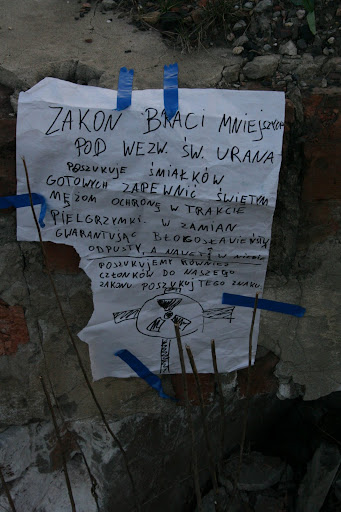 ZAKON BRACI MNIEJSZYCH
POD WEZW. ŚW. URANA
POSZUKUJE ŚMIAŁKÓW
GOTOWYCH ZAPEWNIĆ ŚWIĘTYM
MĘŻOM OCHRONĘ W TRAKCIE
PIELGRZYMKI. W ZAMIAN
GWARANTUJĄC BŁOGOSŁAWIEŃSTWA
ODPUSTY, A NAWET
POSZUKUJEMY RÓWNIEŻ
CZŁONKÓW DO NASZEGO
ZAKONU POSZUKUJ TEGO ZNAKU